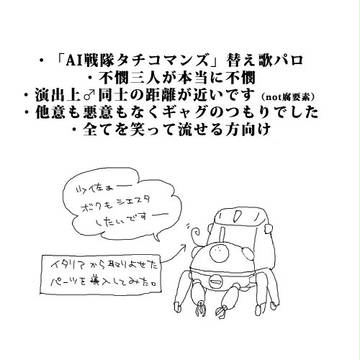 ・「AI戦隊タチコマンズ」替え歌パロ
・不憫三人が本当に不憫
・演出上♂同士の距離が近いです（not腐要素）
・他意も悪意もなくギャグのつもりでした
・全てを笑って流せる方向け
少佐ぁー
ボクもシエスタ
したいですー
イタリアから取りよせた
パーツを導入してみた。